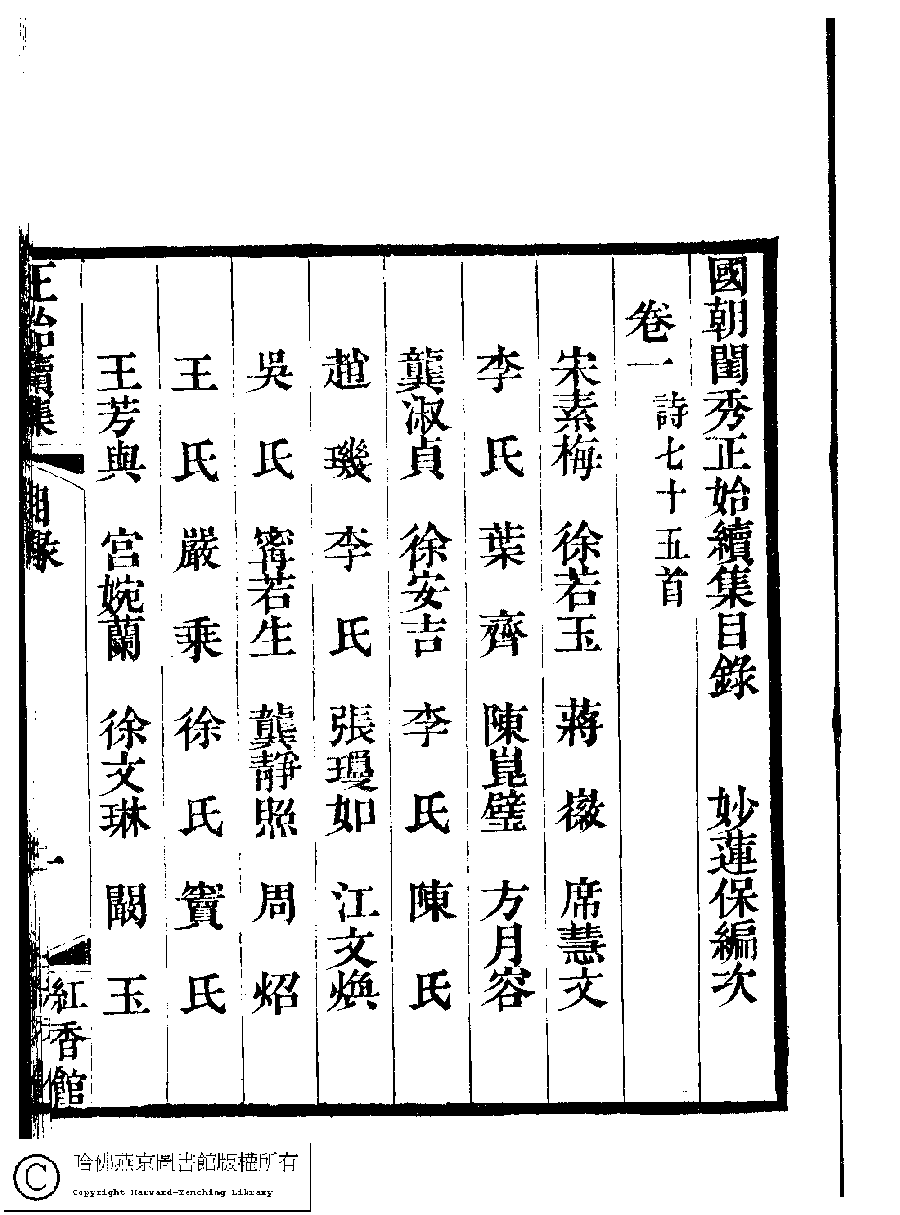 國朝閨秀正始續集目錄 妙蓮保編次
卷一 詩七十五首
宋素梅 徐若玉 蔣徽 席慧文
李氏 葉齊 陳崑璧 方月容
龔淑貞 徐安吉 李氏 陳氏
趙璣 李氏 張瓊如 江文煥
吳氏 甯若生 龔靜照 周炤
王氏 嚴乘 徐氏 竇氏
王芳與 宮婉蘭 徐文琳 闞玉
正始續集 目錄 一 紅香館
哈佛燕京圖書館版權所有
Copyright Harvard-Yenching Library